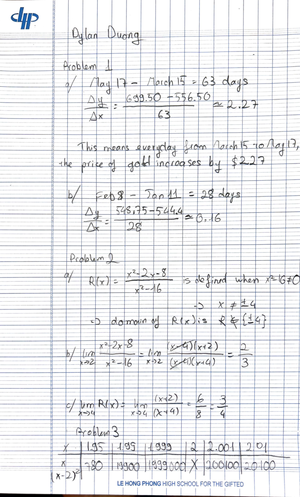 Dylan Duong
Problem 1
a/ May 17 - March 15 = 63 days
Δy/Δx = (699.50 - 556.50)/63 ≈ 2.27
This means everyday from March 15 to May 17,
the price of gold increases by $2.27
b/ Feb 8 - Jan 11 = 28 days
Δy/Δx = (548.75 - 544.4)/28 ≈ 0.16
Problem 2
a/ R(x) = (x²-2x-8)/(x²-16) is defined when x²-16≠0
→ x ≠ ±4
⇒ domain of R(x) is ℝ \ {±4}
b/ lim x→2 (x²-2x-8)/(x²-16) = lim x→2 (x-4)(x+2)/(x-4)(x+4) = 2/3
c/ lim x→4 R(x) = lim x→4 (x+2)/(x+4) = 6/8 = 3/4
Problem 3
x 1.95 1.999 2 2.001 2.01
x/(x-2)² 19900 1999000 X
LE HONG PHONG HIGH SCHOOL FOR THE GIFTED